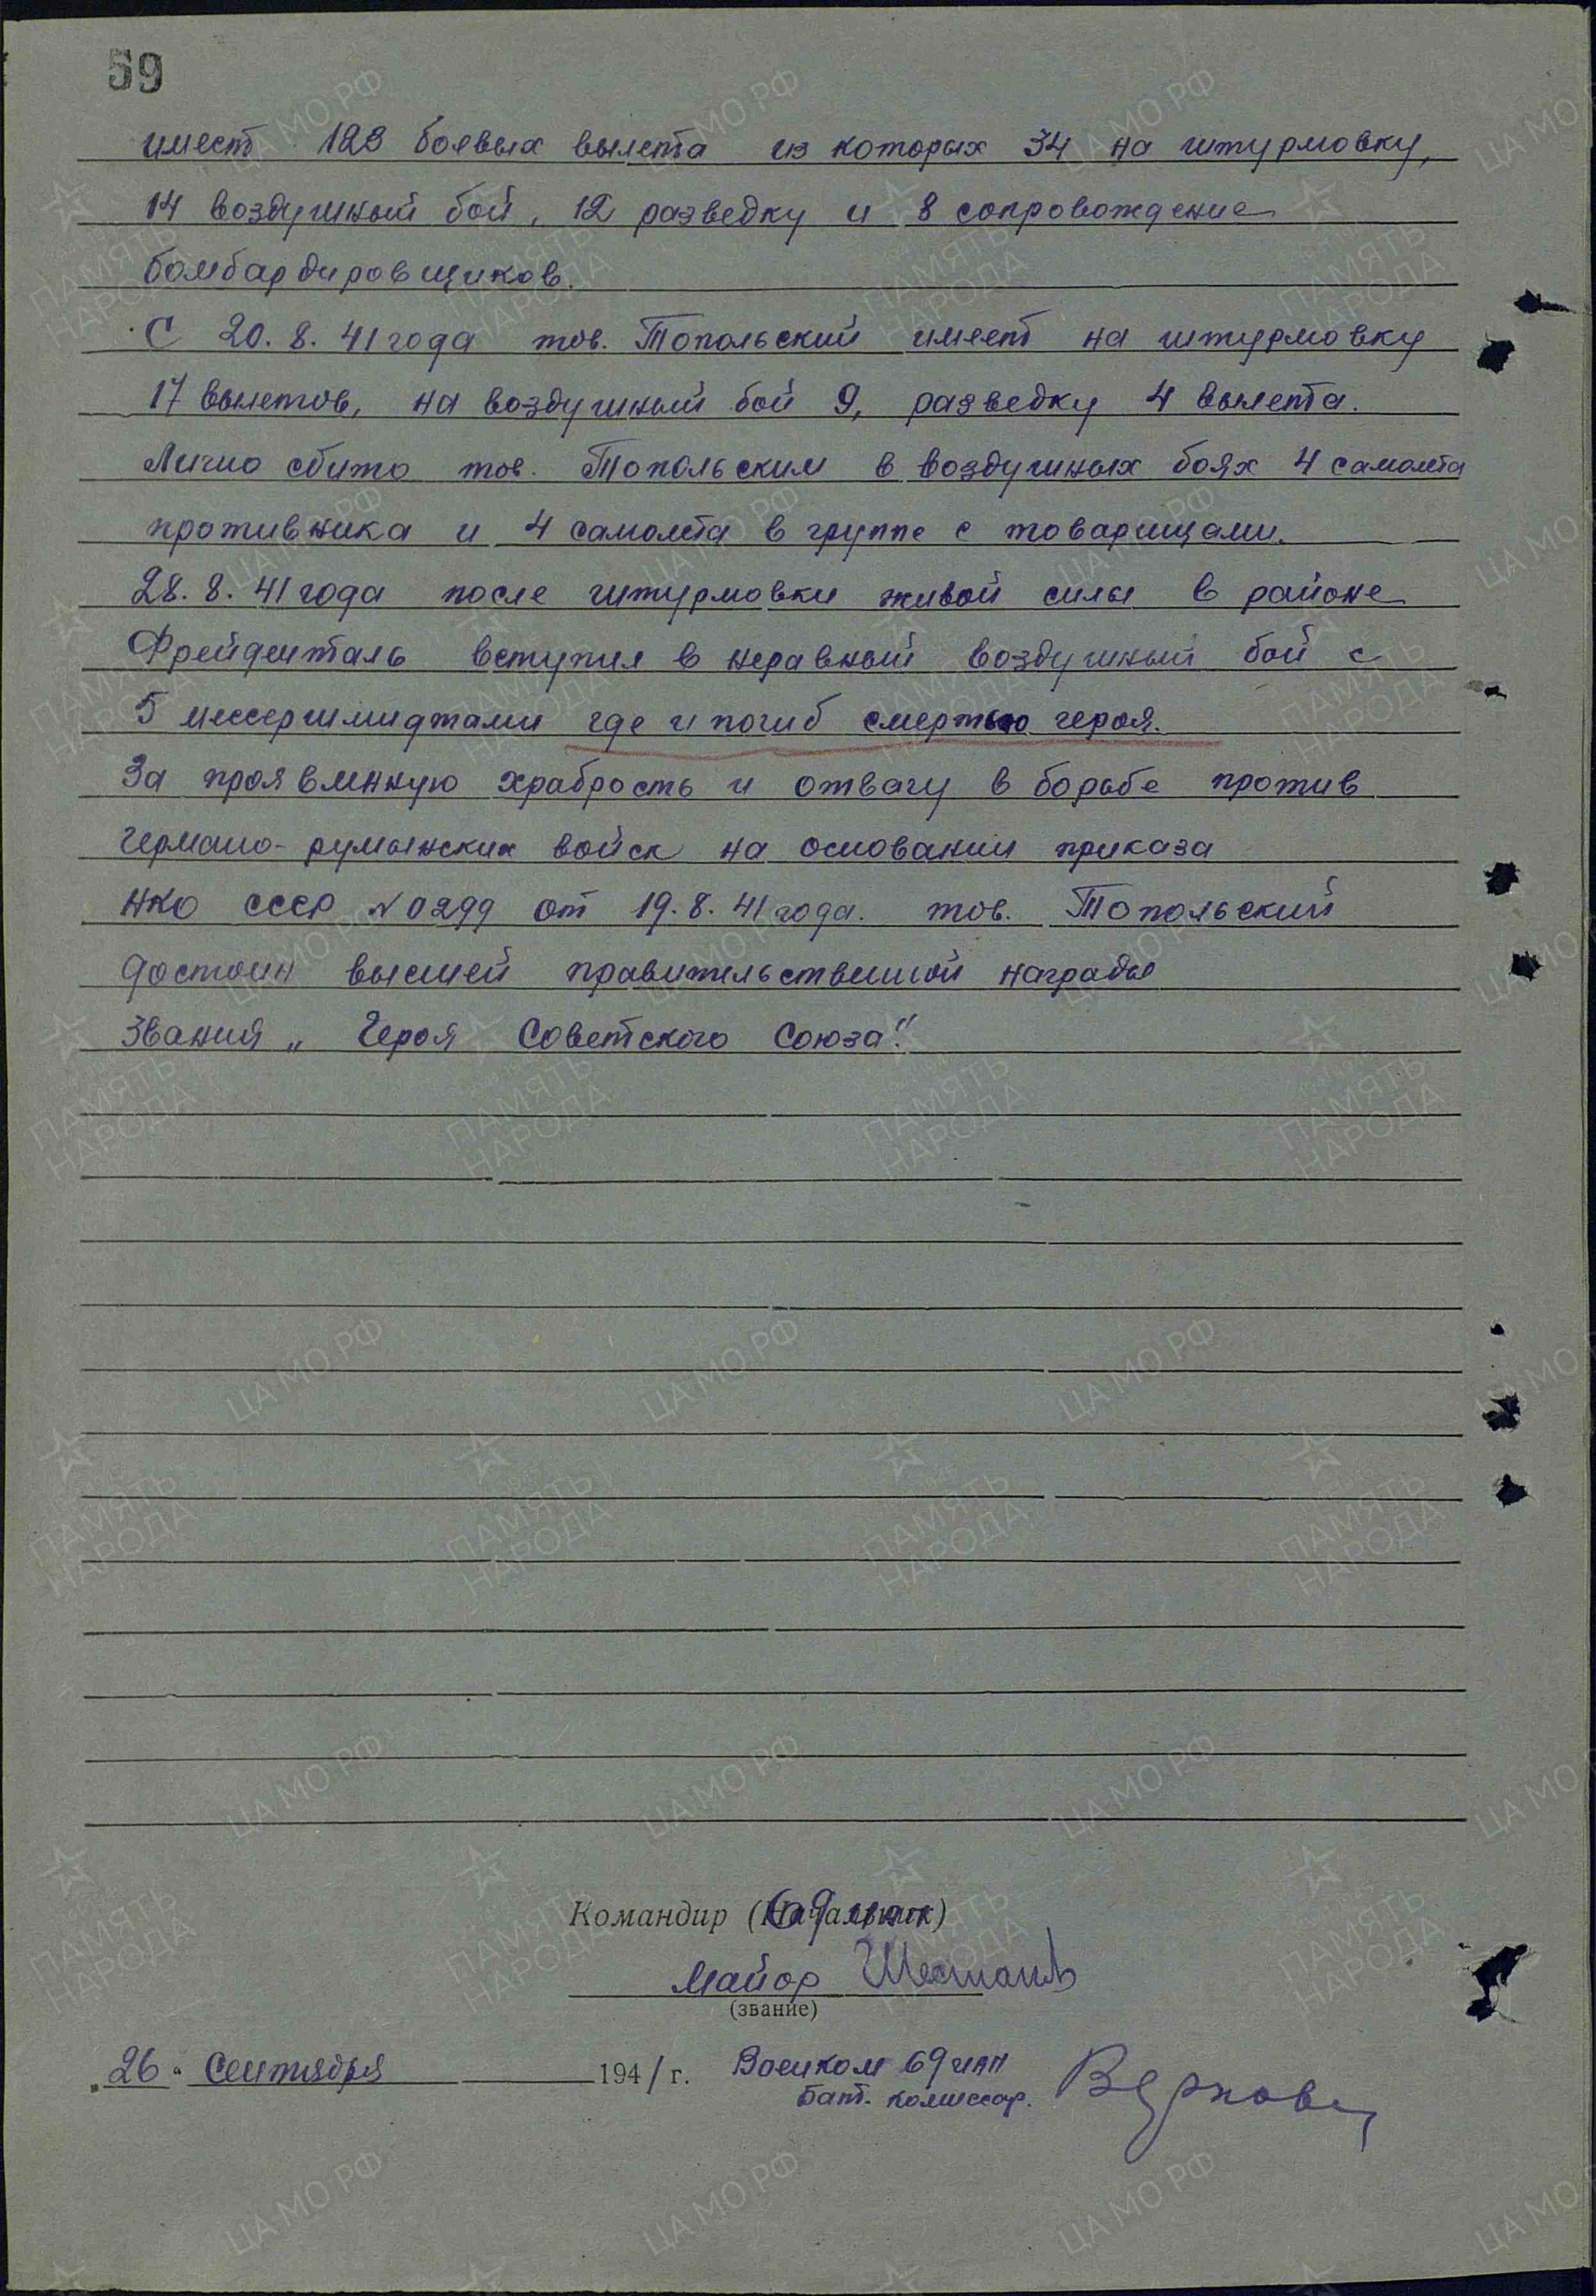 59
имеет 123 боевых вылета из которых 34 на штурмовку,
14 воздушный бой, 12 разведку и 8 сопровождение
бомбардировщиков.
С 20.8.41 года тов. Топольский имеет на штурмовку
17 вылетов, на воздушный бой 9, разведку 4 вылета.
Лично сбито тов. Топольским в воздушных боях 4 самолета
противника и 4 самолета в группе с товарищами.
28.8.41 года после штурмовки живой силы в районе
Фрейденталь вступил в неравный воздушный бой с
5 мессершмидтами где и погиб смертью героя.
За проявленную храбрость и отвагу в борьбе против
германо-румынских войск на основании приказа
НКО СССР №0299 от 19.8.41 года. тов. Топольский
достоин высшей правительственной награды
звания „Героя Советского Союза".
Командир (Начальник) 69 иап
Майор Шестаков
(звание)
„26" Сентября 1941 г. Военком 69 иап
Бат. комиссар.